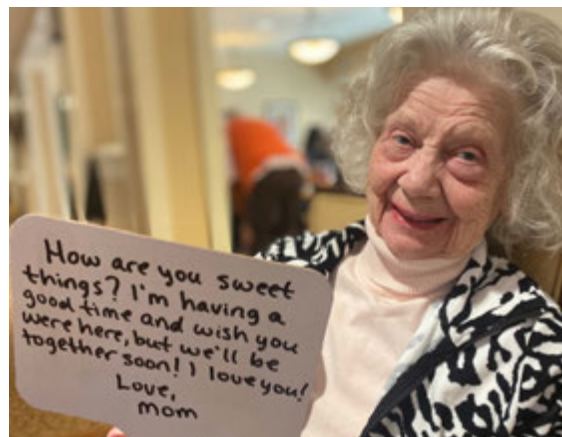 How are you sweet
things? I'm having a
good time and wish you
were here, but we'll be
together soon! I love you!
Love,
Mom